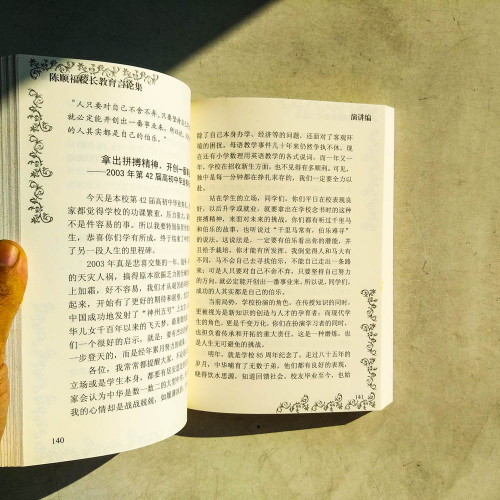 陈顺福校长教育言论集
“人只要对自己不舍不弃,只要坚持
就必定能开创出一番事业来,所以说
的人其实都是自己的伯乐。”
拿出拼搏精神,开创一番
——2003年第42届高初中毕业
今天是本校第42届高初中毕业
家都觉得学校的功课繁重,压力
不是件容易的事。所以我要特别
生,恭喜你们学有所成,终于
了另一段人生的里程碑。
2003年真是悲喜交集的一年,
的天灾人祸,搞得原本欣振乏力
上加霜,好不容易,我们才从
起来,开始有了更好的期待和
中国成功地发射了“神州五号”
华儿女千百年以来的飞天梦,
们一个很好的启示,就是:
一步登天的,而是经年累月努力
各位,我常常都提醒大家,
立场或是学生本身,都要有居安
家会认为中华是数一数二的大
我的心情却是战战兢兢,如履
140
演讲编
除了自己本身办学、经济等的问题,还面对了客观环
境的困扰。母语教学事件几十年来仍然争执不休,现
在还有小学数理用英语教学的各式说词,而一年又一
年,学校在招收新生方面,也不见得有多顺利。可见,
独中是每一分钟都在挣扎求存的,我们一定要全力以
赴。
站在学生的立场,同学们,你们平日在校表现良
好,以后升学或就业,就要拿出在学校念书时的这种
拼搏精神,来面对未来的挑战,你们都有听过千里马
和伯乐的故事,也听说过“千里马常有,伯乐难寻”
的说法。这说法是,一定要有伯乐看出你的潜能,并
且给予栽培,你才能有所发挥。我倒觉得人和马大有
不同,马不会自己去寻找伯乐,不能自己走出一条路
来;可是人只要对自己不舍不弃,只要坚持自己努力
的方向,就必定能开创出一番事业来。所以说,同学们,
成功的人其实都是自己的伯乐。
当前局势,学校扮演的角色,在传授知识的同时,
更被视为是新知识的创造与人才的孕育者;而现代学
生的角色,更是千变万化,你们在扮演学习者的同时,
也担负着传承和开拓的重大责任。这是一种磨炼,也
是人生无可避免的挑战。
明年,就是学校85周年纪念了。走过八十五年的
岁月,中华哺育了无数子弟,他们都有良好的表现,
晓得饮水思源,知道回馈社会。校友毕业至今,也始
141